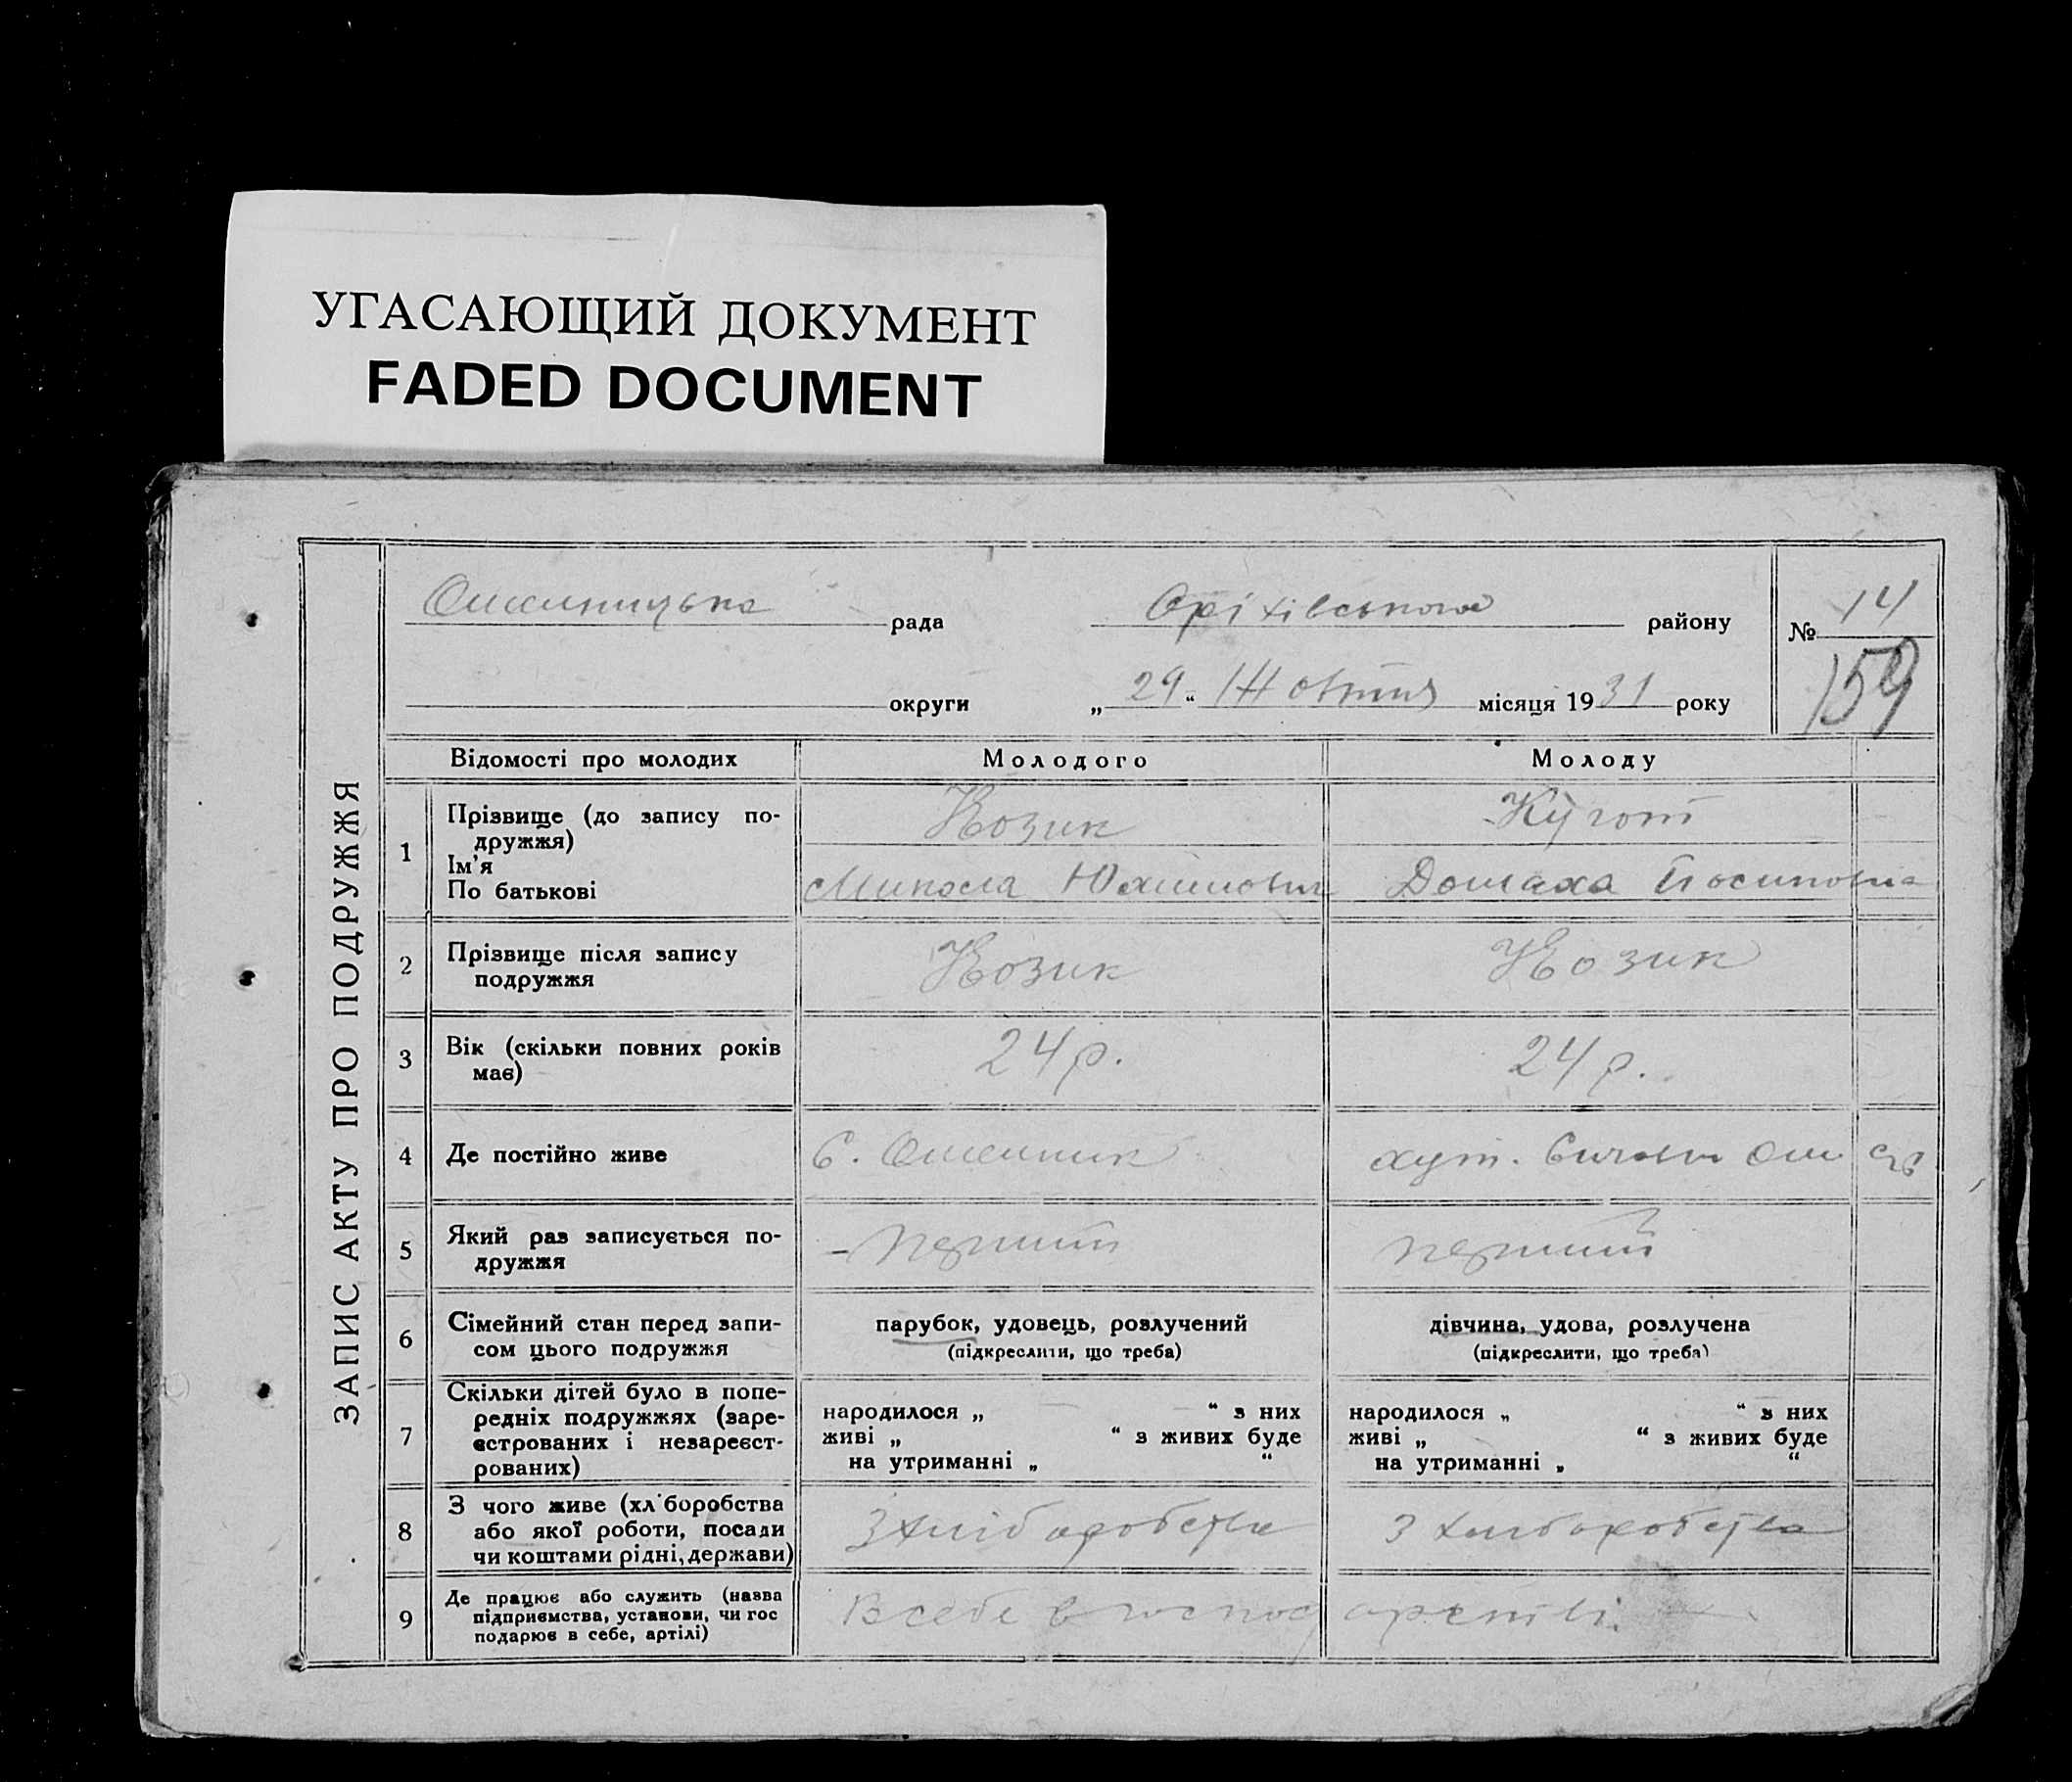 УГАСАЮЩИЙ ДОКУМЕНТ
FADED DOCUMENT
ЗАПИС АКТУ ПРО ПОДРУЖЖЯ
рада
Оріхівського району
№ 14
159
округи
„29“ Жовтня місяця 1931 року
Відомості про молодих
Молодого
Молоду
1
Прізвище (до запису по-
дружжя)
Ім'я
По батькові
Козик
Микола Юхимович
Кугот
Домаха Йосиповна
2
Прізвище після запису
подружжя
Козик
Козик
3
Вік (скільки повних років
має)
24 р.
24 р.
4
Де постійно живе
С.
хут.
5
Який раз записується по-
дружжя
перший
перший
6
Сімейний стан перед запи-
сом цього подружжя
парубок, удовець, розлучений
(підкреслити, що треба)
дівчина, удова, розлучена
(підкреслити, що треба)
7
Скільки дітей було в попе-
редніх подружжях (заре-
єстрованих і незареєст-
рованих)
народилося „ “ з них
живі „ “ з живих буде
на утриманні „ “
народилося „ “ з них
живі „ “ з живих буде
на утриманні „ “
8
З чого живе (хліборобства
або якої роботи, посади
чи коштами рідні, держави)
З хліборобства
З хліборобства
9
Де працює або служить (назва
підприємства, установи, чи гос
подарює в себе, артілі)
В себе в господарстві.